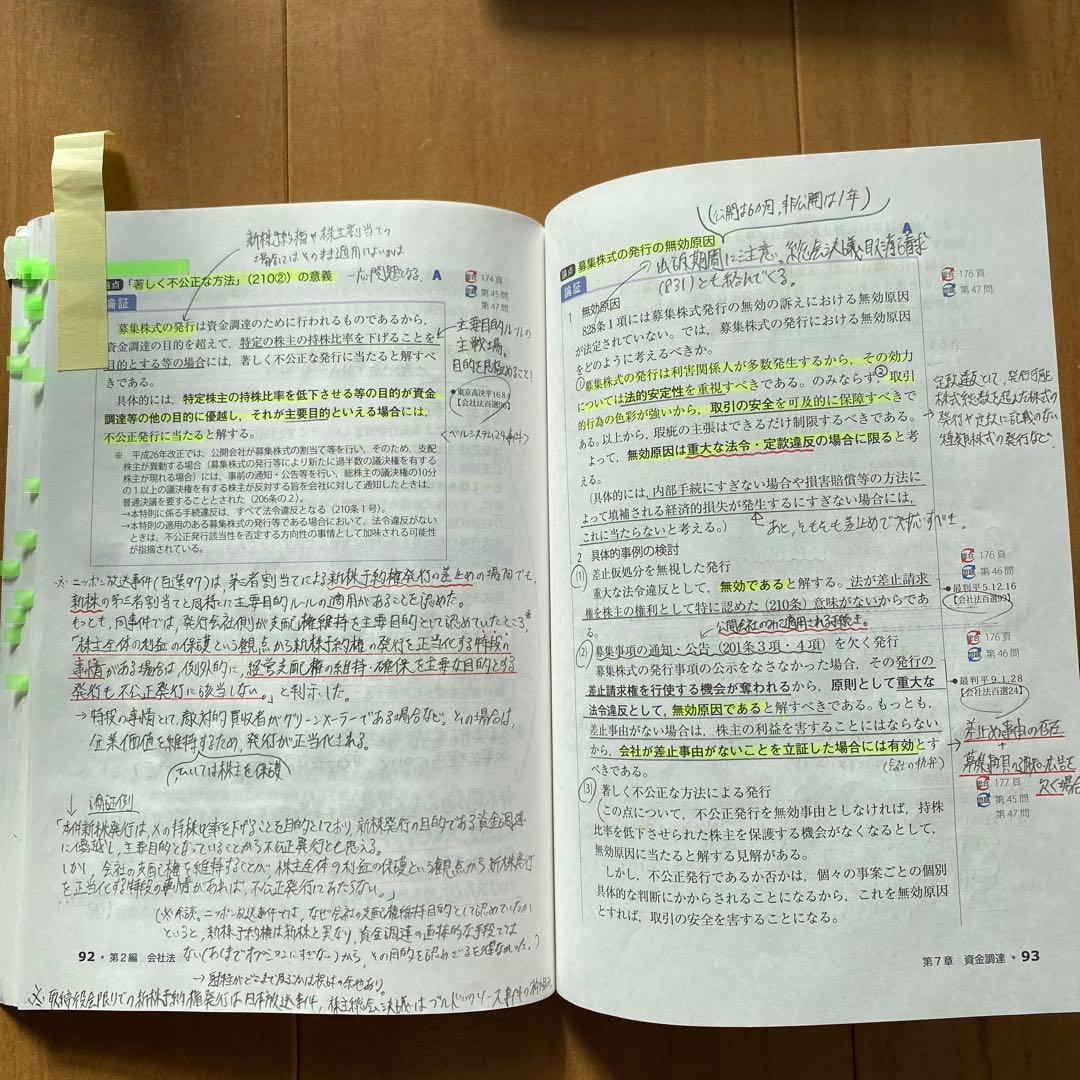 新株予約権や株主割当ての
場合にはそのまま適用してよいかは
一応問題となる。
論点 「著しく不公正な方法」（210②）の意義 A
総合 174頁
問題 第45問
第47問
論証
募集株式の発行は資金調達のために行われるものであるから、
資金調達の目的を超えて、特定の株主の持株比率を下げることを
目的とする等の場合には、著しく不公正な発行に当たると解すべ
きである。
具体的には、特定株主の持株比率を低下させる等の目的が資金
調達等の他の目的に優越し、それが主要目的といえる場合には、
不公正発行に当たると解する。
※ 平成26年改正では、公開会社が募集株式の割当て等を行い、そのため、支配
株主が異動する場合（募集株式の発行等により新たに過半数の議決権を有する
株主が現れる場合）には、事前の通知・公告等を行い、総株主の議決権の10分
の1以上の議決権を有する株主が反対する旨を会社に対して通知したときは、
普通決議を要することとされた（206条の2）。
→本特則に係る手続違反は、すべて法令違反となる（210条1号）。
→本特則の適用のある募集株式の発行等である場合において、法令違反がない
ときは、不公正発行該当性を否定する方向性の事情として加味される可能性
が指摘されている。
主要目的ルールの
主戦場。
目的を見極めること！
●東京高決平16.8.4
【会社法百選96】
〈ベルシステム24事件〉
※ニッポン放送事件（百選97）は、第三者割当てによる新株予約権発行の差止めの場面でも、
新株の第三者割当てと同様に主要目的ルールの適用があることを認めた。
もっとも、同事件では、発行会社側が支配権維持を主要目的として認めていたところ、※
「株主全体の利益の保護という観点から新株予約権の発行を正当化する特段の
事情がある場合は、例外的に、経営支配権の維持・確保を主要な目的とする
発行も不公正発行に該当しない。」と判示した。
→特段の事情として、敵対的買収者がグリーンメーラーである場合など。その場合は、
企業価値を維持するため、発行が正当化される。
ひいては株主を保護
↓ 論証例
「本件新株発行は、Xの持株比率を下げることを目的としており、新株発行の目的である資金調達
に優越し、主要目的となっていることから不公正発行とも思える。
しかし、会社の支配権を維持することが、株主全体の利益の保護という観点から新株発行
を正当化する特段の事情があれば、不公正発行にあたらない。」
（※余談。ニッポン放送事件では、なぜ会社の支配権維持目的として認めていたか
というと、新株予約権は新株と異なり、資金調達の直接的な手段では
ない（あくまでオプションにすぎない）から、その目的を認めざるを得なかった。）
→射程がどこまで及ぶかは検討の余地あり。
※取締役会限りでの新株予約権発行は日本放送事件、株主総会決議はブルドックソース事件の
92 ▪ 第2編 会社法
（公開は6か月、非公開は1年）
論点 募集株式の発行の無効原因 A
出訴期間に注意。総会決議取消請求
（831）とも絡んでくる。
総合 176頁
問題 第47問
論証
1 無効原因
828条1項には募集株式発行の無効の訴えにおける無効原因
が法定されていない。では、募集株式の発行における無効原因
をどのように考えるべきか。
①募集株式の発行は利害関係人が多数発生するから、その効力
については法的安定性を重視すべきである。のみならず、②取引
的行為の色彩が強いから、取引の安全を可及的に保障すべきで
ある。以上から、瑕疵の主張はできるだけ制限すべきである。
よって、無効原因は重大な法令・定款違反の場合に限ると考
える。
（具体的には、内部手続にすぎない場合や損害賠償等の方法に
よって填補される経済的損失が発生するにすぎない場合には、
これに当たらないと考える。）
あと、そもそも差止めで対応すべき。
定款違反として、発行可能
株式総数を超えた株式の
発行や定款に記載のない
種類株式の発行など
2 具体的事例の検討
(1) 差止仮処分を無視した発行
重大な法令違反として、無効であると解する。法が差止請求
権を株主の権利として特に認めた（210条）意味がないからであ
る。
総合 176頁
問題 第46問
●最判平5.12.16
【会社法百選99】
公開会社のみで適用される手続き。
(2) 募集事項の通知・公告（201条3項・4項）を欠く発行
募集株式の発行事項の公示をなさなかった場合、その発行の
差止請求権を行使する機会が奪われるから、原則として重大な
法令違反として、無効原因であると解すべきである。もっとも、
差止事由がない場合は、株主の利益を害することにはならない
から、会社が差止事由がないことを立証した場合には有効とす
べきである。
（会社の抗弁）
総合 176頁
問題 第46問
●最判平9.1.28
【会社法百選24】
差止め事由の存在
+
募集事項の通知・公告を
欠く場合
(3) 著しく不公正な方法による発行
（この点について、不公正発行を無効事由としなければ、持株
比率を低下させられた株主を保護する機会がなくなるとして、
無効原因に当たると解する見解がある。
しかし、不公正発行であるか否かは、個々の事案ごとの個別
具体的な判断にかからされることになるから、これを無効原因
とすれば、取引の安全を害することになる。
総合 177頁
問題 第45問
第47問
第7章 資金調達 ▪ 93